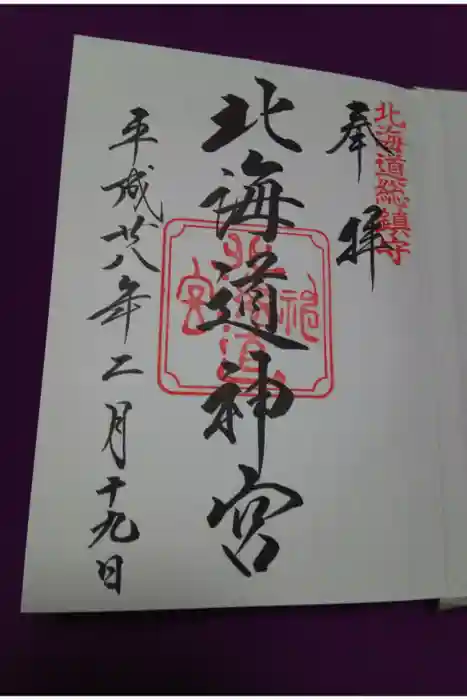 北海道総鎮守
奉拝
北海道神宮
北海道神宮
平成廿八年二月十九日